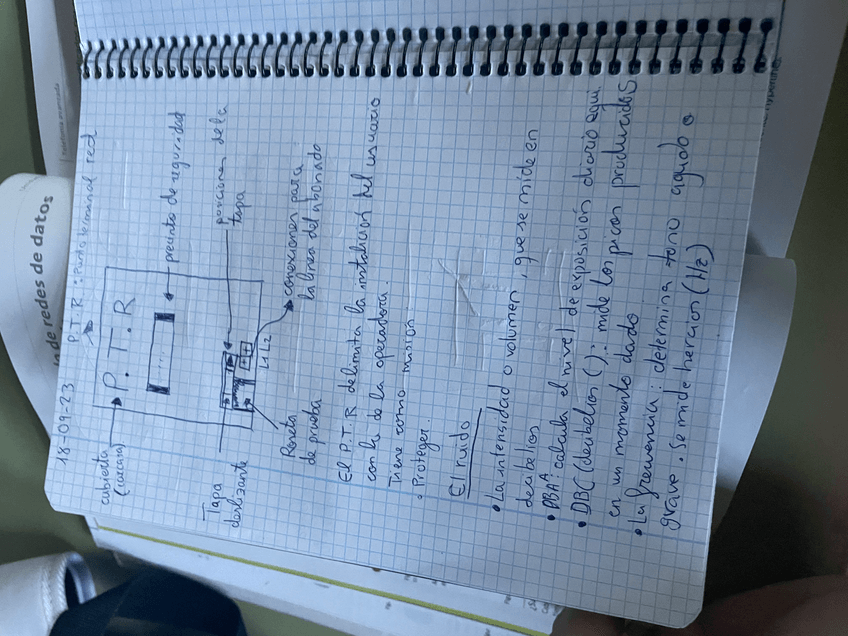 18-09-23
P.T.R : Punto terminal red
cubierta
(carcasa)
P.T.R
precinto de seguridad
porciones de la
tapa
Tapa
deslizante
L1 L2
conexiones para
la linea del abonado
Roseta
de prueba
El P.T.R delimita la instalacion del usuario
con la de la operadora.
Tiene como mision
· Proteger
El ruido
• La intensidad o volumen, que se mide en
decibelios
• DBA calcula el nivel de exposición diario equi.
• DBC (decibelios C): mide los picos producidos
en un momento dado
• La frecuencia: determina tono agudo o
grave. se mide hercios (Hz)
de redes de datos